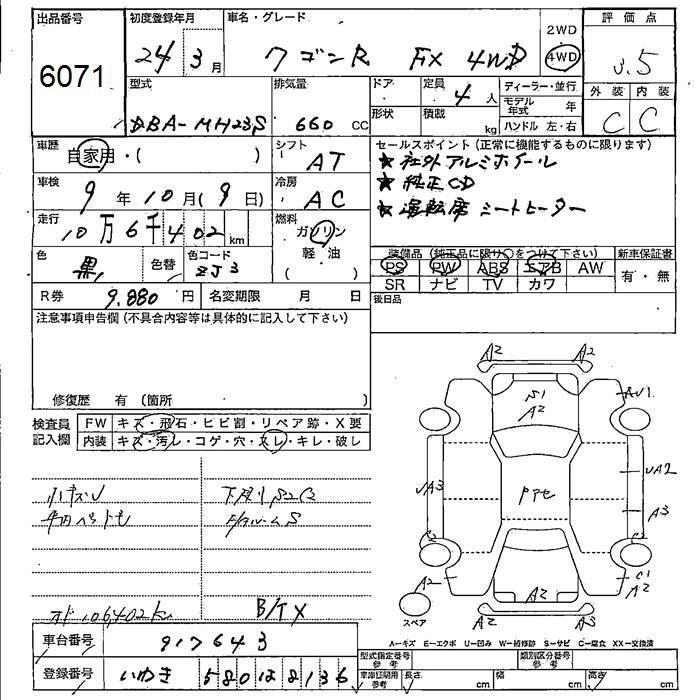 出品番号
6071
初度登録年月
24 3月
車名・グレード
ワゴンR FX 4WD
2WD
4WD
評価点
3.5
外装 内装
C C
型式
DBA-MH23S
排気量
660 CC
ドア
形状
定員
4人
積載
kg
ディーラー・並行
モデル年式 年
ハンドル 左・右
車歴
自家用・( )
シフト
AT
セールスポイント(正常に機能するものに限ります)
★社外アルミホイール
★純正CD
★運転席シートヒーター
車検
9年10月(9日)
冷房
AC
走行
10万6千402km
燃料
ガソリン
軽・油
( )
色
黒
色替
色コード
ZJ3
装備品(純正品に限り○をつけて下さい)
PS PW ABS エアB AW
SR ナビ TV カワ
新車保証書
有・無
R券 9.880円
名変期限 月 日
後日品
注意事項申告欄(不具合内容等は具体的に記入して下さい)
修復歴 有(箇所 )
検査員記入欄
FW キズ・飛石・ヒビ割・リペア跡・X要
内装 キズ・汚レ・コゲ・穴・スレ・キレ・破レ
小キズU
下廻りS2C2
S
オド106402km
B/TX
A2 A2
S1
A2
AU1
UA3
UA2
A3
C2 C2
A2
C1
A2
A2
A2 A3
スペア
A-キズ E-エクボ U-凹み W-補修跡 S-サビ C-腐食 XX-交換済
車台番号 917643
登録番号 いわき 580 い 8136
型式指定番号 参考
類別区分番号 参考
車庫証明用 参考
長さ cm
幅 cm
高さ cm